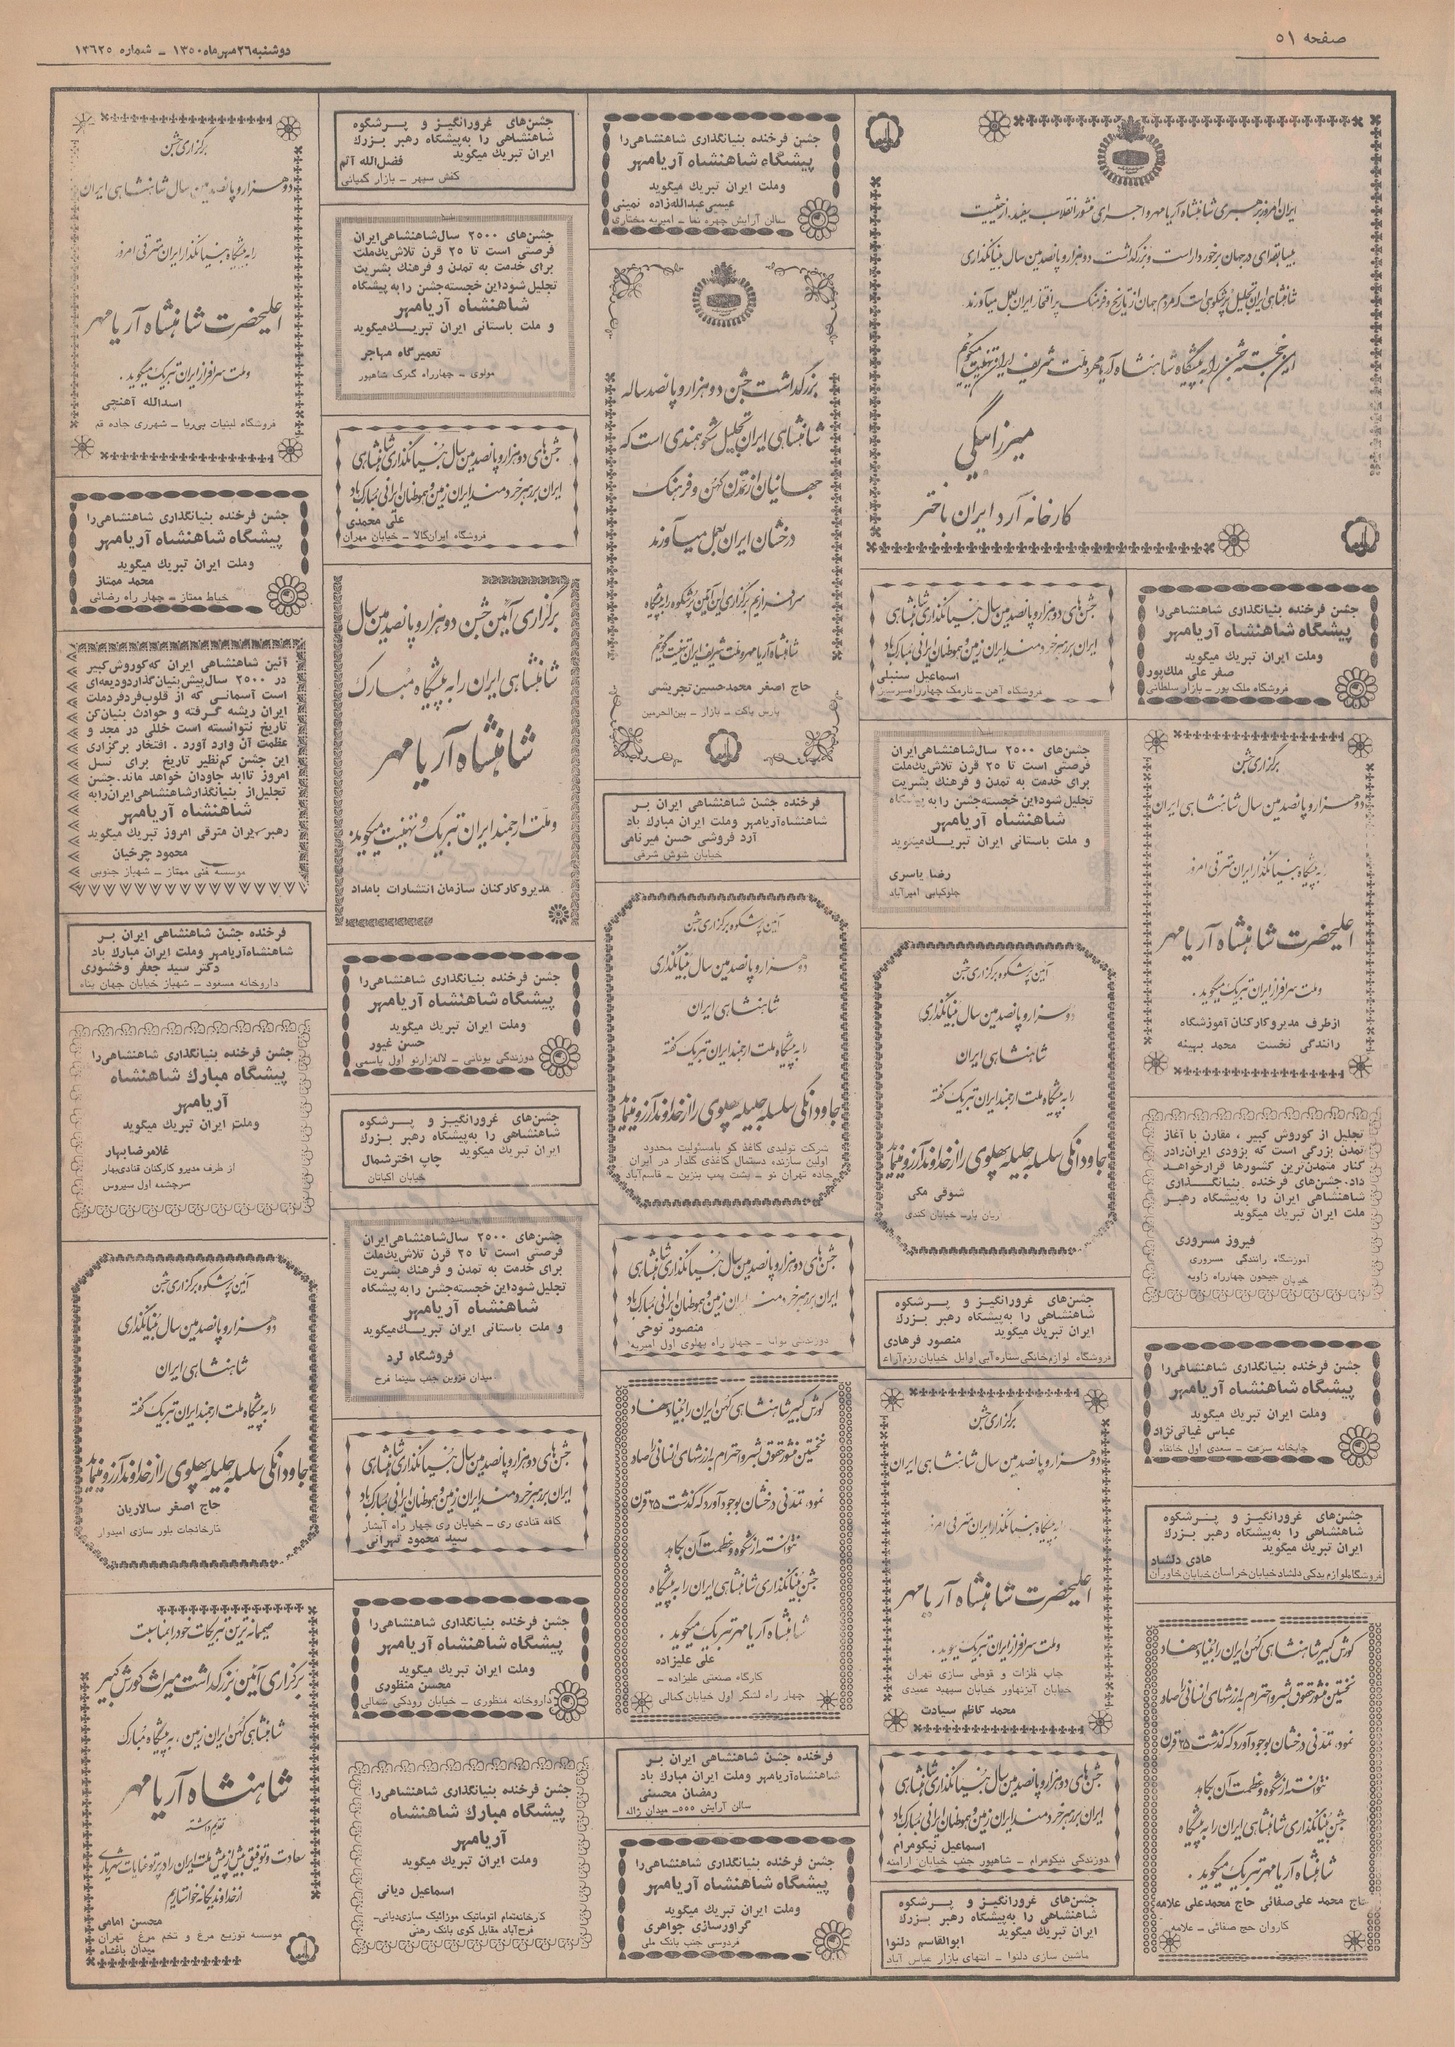 صفحه ۵۱
دوشنبه ۲۶ مهرماه ۱۳۵۰ - شماره ۱۳۶۲۵
ایران امروز برهبری شاهنشاه آریامهر و اجرای منشور انقلاب سفید، از حیثیت
بیسابقه‌ای در جهان برخوردار است و بزرگداشت دوهزار و پانصدمین سال بنیانگذاری
شاهنشاهی ایران تجلیل پرشکوهی است که مردم جهان از تاریخ و فرهنگ پرافتخار ایران بعمل میآورند
این خجسته جشن را به پیشگاه شاهنشاه آریامهر و ملت شریف ایران تهنیت میگوئیم
میرزا بیگی
کارخانه آرد ایران باختر
جشن فرخنده بنیانگذاری شاهنشاهی را
پیشگاه شاهنشاه آریامهر
وملت ایران تبریك میگوید
صفر علی ملك‌پور
فروشگاه ملك پور - بازار سلطانی
برگزاری جشن
دوهزار و پانصدمین سال شاهنشاهی ایران
را به پیشگاه بنیانگذار ایران مترقی امروز
اعلیحضرت شاهنشاه آریامهر
وملت سرافراز ایران تبریک میگوید.
ازطرف مدیر و کارکنان آموزشگاه
رانندگی نخست محمد بهینه
تجلیل از کوروش کبیر ، مقارن با آغاز
تمدن بزرگی است که بزودی ایران‌رادر
کنار متمدن‌ترین کشورها قرارخواهد
داد. جشن‌های فرخنده بنیانگـذاری
شاهنشاهی ایران را به‌پیشگاه رهبـر
ملت ایران تبریك میگوید
فیروز مسروری
آموزشگاه رانندگی مسروری
خیابان جیحون چهارراه زاویه
جشن فرخنده بنیانگذاری شاهنشاهی را
پیشگاه شاهنشاه آریامهر
وملت ایران تبریك میگوید
عباس غیاثی‌نژاد
چاپخانه سرعت - سعدی اول خانقاه
جشن‌های غرورانگیـز و پـرشکوه
شاهنشاهی را به‌پیشگاه رهبر بـزرك
ایران تبریك میگوید
هادی دلشاد
فروشگاه لوازم یدکی دلشاد خیابان خراسان خیابان خاوران
کورش کبیر شاهنشاهی کهن ایران را بنیاد نهاد
نخستین منشور حقوق بشر و احترام به ارزشهای انسانی را صادر
نمود، تمدنی درخشان بوجود آورد که گذشت ۲۵ قرن
نتوانسته از شکوه و عظمت آن بکاهد
جشن بنیانگذاری شاهنشاهی ایران را به پیشگاه
شاهنشاه آریامهر تبریک میگوید .
حاج محمد علی‌صفائی حاج محمدعلی علامه
کاروان حج صفائی - علامه
جشن‌های دوهزار و پانصدمین سال بنیانگذاری شاهنشاهی
ایران بر رهبر خردمند ایران زمین و هموطنان ایرانی مبارک باد
اسماعیل سنبلی
فروشگاه آهن - نارمک
جشن‌های ۲۵۰۰ سال‌شاهنشاهی‌ایران
فرصتی است تا ۲۵ قرن تلاش‌یك‌ملت
برای خدمت به تمدن و فرهنك بشریت
تجلیل شوداین خجسته‌جشن را به پیشگاه
شاهنشاه آریامهر
و ملت باستانی ایران تبریـك‌میگوید
رضا یاسری
چلوکبابی امیرآباد
آئین پرشکوه برگزاری جشن
دوهزار و پانصدمین سال بنیانگذاری
شاهنشاهی ایران
را به پیشگاه ملت ارجمند ایران تبریک گفته
جاودانگی سلسله جلیله پهلوی را از خداوند آرزو مینماید
شوقی مکی
خیابان کندی
جشن‌های غرورانگیـز و پـرشکوه
شاهنشاهی را به‌پیشگاه رهبر بـزرك
ایران تبریك میگوید
منصور فرهادی
فروشگاه لوازم‌خانگی ستاره‌آبی اوایل خیابان رزم‌آراء
برگزاری جشن
دوهزار و پانصدمین سال شاهنشاهی ایران
را به پیشگاه بنیانگذار ایران مترقی امروز
اعلیحضرت شاهنشاه آریامهر
وملت سرافراز ایران تبریک میگوید.
چاپ فلزات و قوطی سازی تهران
خیابان آیزنهاور خیابان سپهبد عمیدی
محمد کاظم سیادت
جشن‌های دوهزار و پانصدمین سال بنیانگذاری شاهنشاهی
ایران بر رهبر خردمند ایران زمین و هموطنان ایرانی مبارک باد
اسماعیل نیکومرام
دوزندگی نیکومرام - شاهپور جنب خیابان ارامنه
جشن‌های غرورانگیـز و پـرشکوه
شاهنشاهی را به‌پیشگاه رهبر بـزرك
ایران تبریك میگوید
ابوالقاسم دلنوا
ماشین سازی دلنوا - انتهای بازار عباس آباد
جشن فرخنده بنیانگذاری شاهنشاهی را
پیشگاه شاهنشاه آریامهر
وملت ایران تبریك میگوید
عیسی عبدالله‌زاده نمینی
سالن آرایش چهره نما - امیریه مختاری
بزرگداشت جشن دوهزار و پانصد ساله
شاهنشاهی ایران تجلیل شکوهمندی است که
جهانیان از تمدن کهن و فرهنگ
درخشان ایران بعمل میآورند
سرافرازیم برگزاری این آئین پرشکوه را به پیشگاه
شاهنشاه آریامهر و ملت شریف ایران تهنیت گوئیم
حاج اصغر محمدحسین تجریشی
پارس پاکت - بازار - بین‌الحرمین
فرخنده جشن شاهنشاهی ایران بـر
شاهنشاه‌آریامهر وملت ایران مبارك باد
آرد فروشی حسن میرنامی
خیابان شوش شرقی
آئین پرشکوه برگزاری جشن
دوهزار و پانصدمین سال بنیانگذاری
شاهنشاهی ایران
را به پیشگاه ملت ارجمند ایران تبریک گفته
جاودانگی سلسله جلیله پهلوی را از خداوند آرزو مینماید
شرکت تولیدی کاغذ کو بامسئولیت محدود
اولین سازنده دستمال کاغذی گلدار در ایران
جاده تهران نو - پشت پمپ بنزین - قاسم‌آباد
جشن‌های دوهزار و پانصدمین سال بنیانگذاری شاهنشاهی
ایران بر رهبر خردمند ایران زمین و هموطنان ایرانی مبارک باد
منصور نوحی
دوزندگی - چهار راه پهلوی اول امیریه
کورش کبیر شاهنشاهی کهن ایران را بنیاد نهاد
نخستین منشور حقوق بشر و احترام به ارزشهای انسانی را صادر
نمود، تمدنی درخشان بوجود آورد که گذشت ۲۵ قرن
نتوانسته از شکوه و عظمت آن بکاهد
جشن بنیانگذاری شاهنشاهی ایران را به پیشگاه
شاهنشاه آریامهر تبریک میگوید .
علی علیزاده
کارگاه صنعتی علیزاده -
چهار راه لشکر اول خیابان کمالی
فرخنده جشن شاهنشاهی ایران بـر
شاهنشاه‌آریامهر وملت ایران مبارك باد
رمضان محسنی
سالن آرایش ۵۵۵- میدان ژاله
جشن فرخنده بنیانگذاری شاهنشاهی را
پیشگاه شاهنشاه آریامهر
وملت ایران تبریك میگوید
گراورسازی جواهری
فردوسی جنب بانک ملی
جشن‌های غرورانگیـز و پـرشکوه
شاهنشاهی را به‌پیشگاه رهبر بـزرك
ایران تبریك میگوید
فضل‌الله آتم
کفش سپهر - بازار کمپانی
جشن‌های ۲۵۰۰ سال‌شاهنشاهی‌ایران
فرصتی است تا ۲۵ قرن تلاش‌یك‌ملت
برای خدمت به تمدن و فرهنك بشریت
تجلیل شوداین خجسته‌جشن را به پیشگاه
شاهنشاه آریامهر
و ملت باستانی ایران تبریـك‌میگوید
تعمیرگاه مهاجر
مولوی - چهارراه گمرک شاهپور
جشن‌های دوهزار و پانصدمین سال بنیانگذاری شاهنشاهی
ایران بر رهبر خردمند ایران زمین و هموطنان ایرانی مبارک باد
علی محمدی
فروشگاه ایران‌کالا - خیابان مهران
برگزاری آئین جشن دوهزار و پانصدمین سال
شاهنشاهی ایران را به پیشگاه مبارک
شاهنشاه آریامهر
وملت ارجمند ایران تبریک و تهنیت میگوید.
مدیر و کارکنان سازمان انتشارات بامداد
جشن فرخنده بنیانگذاری شاهنشاهی را
پیشگاه شاهنشاه آریامهر
وملت ایران تبریك میگوید
حسن غیور
دوزندگی یونانی - لاله‌زارنو اول یاسمی
جشن‌های غرورانگیـز و پـرشکوه
شاهنشاهی را به‌پیشگاه رهبر بـزرك
ایران تبریك میگوید
چاپ اخترشمال
خیابان اکباتان
جشن‌های ۲۵۰۰ سال‌شاهنشاهی‌ایران
فرصتی است تا ۲۵ قرن تلاش‌یك‌ملت
برای خدمت به تمدن و فرهنك بشریت
تجلیل شوداین خجسته‌جشن را به پیشگاه
شاهنشاه آریامهر
و ملت باستانی ایران تبریـك‌میگوید
فروشگاه لرد
میدان قزوین جنب سینما فرح
جشن‌های دوهزار و پانصدمین سال بنیانگذاری شاهنشاهی
ایران بر رهبر خردمند ایران زمین و هموطنان ایرانی مبارک باد
کافه قنادی ری - خیابان ری چهار راه آبشار
سید محمود تهرانی
جشن فرخنده بنیانگذاری شاهنشاهی را
پیشگاه شاهنشاه آریامهر
وملت ایران تبریك میگوید
محسن منظوری
داروخانه منظوری - خیابان رودکی شمالی
جشن فرخنده بنیانگذاری شاهنشاهی را
پیشگاه مبارك شاهنشاه
آریامهر
وملت ایران تبریك میگوید
اسماعیل دیانی
کارخانه‌تمام اتوماتیک موزائیک سازی‌دیانی-
فرح‌آباد مقابل کوی بانک رهنی
برگزاری جشن
دوهزار و پانصدمین سال شاهنشاهی ایران
را به پیشگاه بنیانگذار ایران مترقی امروز
اعلیحضرت شاهنشاه آریامهر
وملت سرافراز ایران تبریک میگوید.
اسدالله آهنچی
فروشگاه لبنیات بی‌ریا - شهرری جاده قم
جشن فرخنده بنیانگذاری شاهنشاهی را
پیشگاه شاهنشاه آریامهر
وملت ایران تبریك میگوید
محمد ممتاز
خیاط ممتاز - چهار راه رضائی
آئین شاهنشاهی ایران که‌کوروش‌کبیر
در ۲۵۰۰ سال‌پیش‌بنیان‌گذاردودیعه‌ای
است آسمانی که از قلوب‌فردفردملت
ایران ریشه گرفته و حوادث بنیان‌کن
تاریخ نتوانسته است خللی در مجد و
عظمت آن وارد آورد . افتخار برگزاری
این جشن کم‌نظیر تاریخ برای نسل
امروز تاابد جاودان خواهد ماند.جشن
تجلیل‌از بنیانگذارشاهنشاهی‌ایران‌رابه
شاهنشاه آریامهر
رهبر ایران مترقی امروز تبریك میگوید
محمود چرخیان
موسسه فنی ممتاز - شهباز جنوبی
فرخنده جشن شاهنشاهی ایران بـر
شاهنشاه‌آریامهر وملت ایران مبارك باد
دکتر سید جعفر وخشوری
داروخانه مسعود - شهباز خیابان جهان پناه
جشن فرخنده بنیانگذاری شاهنشاهی را
پیشگاه مبارك شاهنشاه
آریامهر
وملت ایران تبریك میگوید
غلامرضابهار
از طرف مدیر و کارکنان قنادی‌بهار
سرچشمه اول سیروس
آئین پرشکوه برگزاری جشن
دوهزار و پانصدمین سال بنیانگذاری
شاهنشاهی ایران
را به پیشگاه ملت ارجمند ایران تبریک گفته
جاودانگی سلسله جلیله پهلوی را از خداوند آرزو مینماید
حاج اصغر سالاریان
کارخانجات بلور سازی امیدوار
صمیمانه ترین تبریکات خود را بمناسبت
برگزاری آئین بزرگداشت میراث کورش کبیر
شاهنشاهی کهن ایران زمین، به پیشگاه مبارک
شاهنشاه آریامهر
تقدیم داشته
سعادت و توفیق بیش از پیش ملت ایران را در پرتو عنایات شهریاری
از خداوند یگانه خواستاریم
محسن امامی
موسسه توزیع مرغ و تخم مرغ تهران
میدان باغشاه